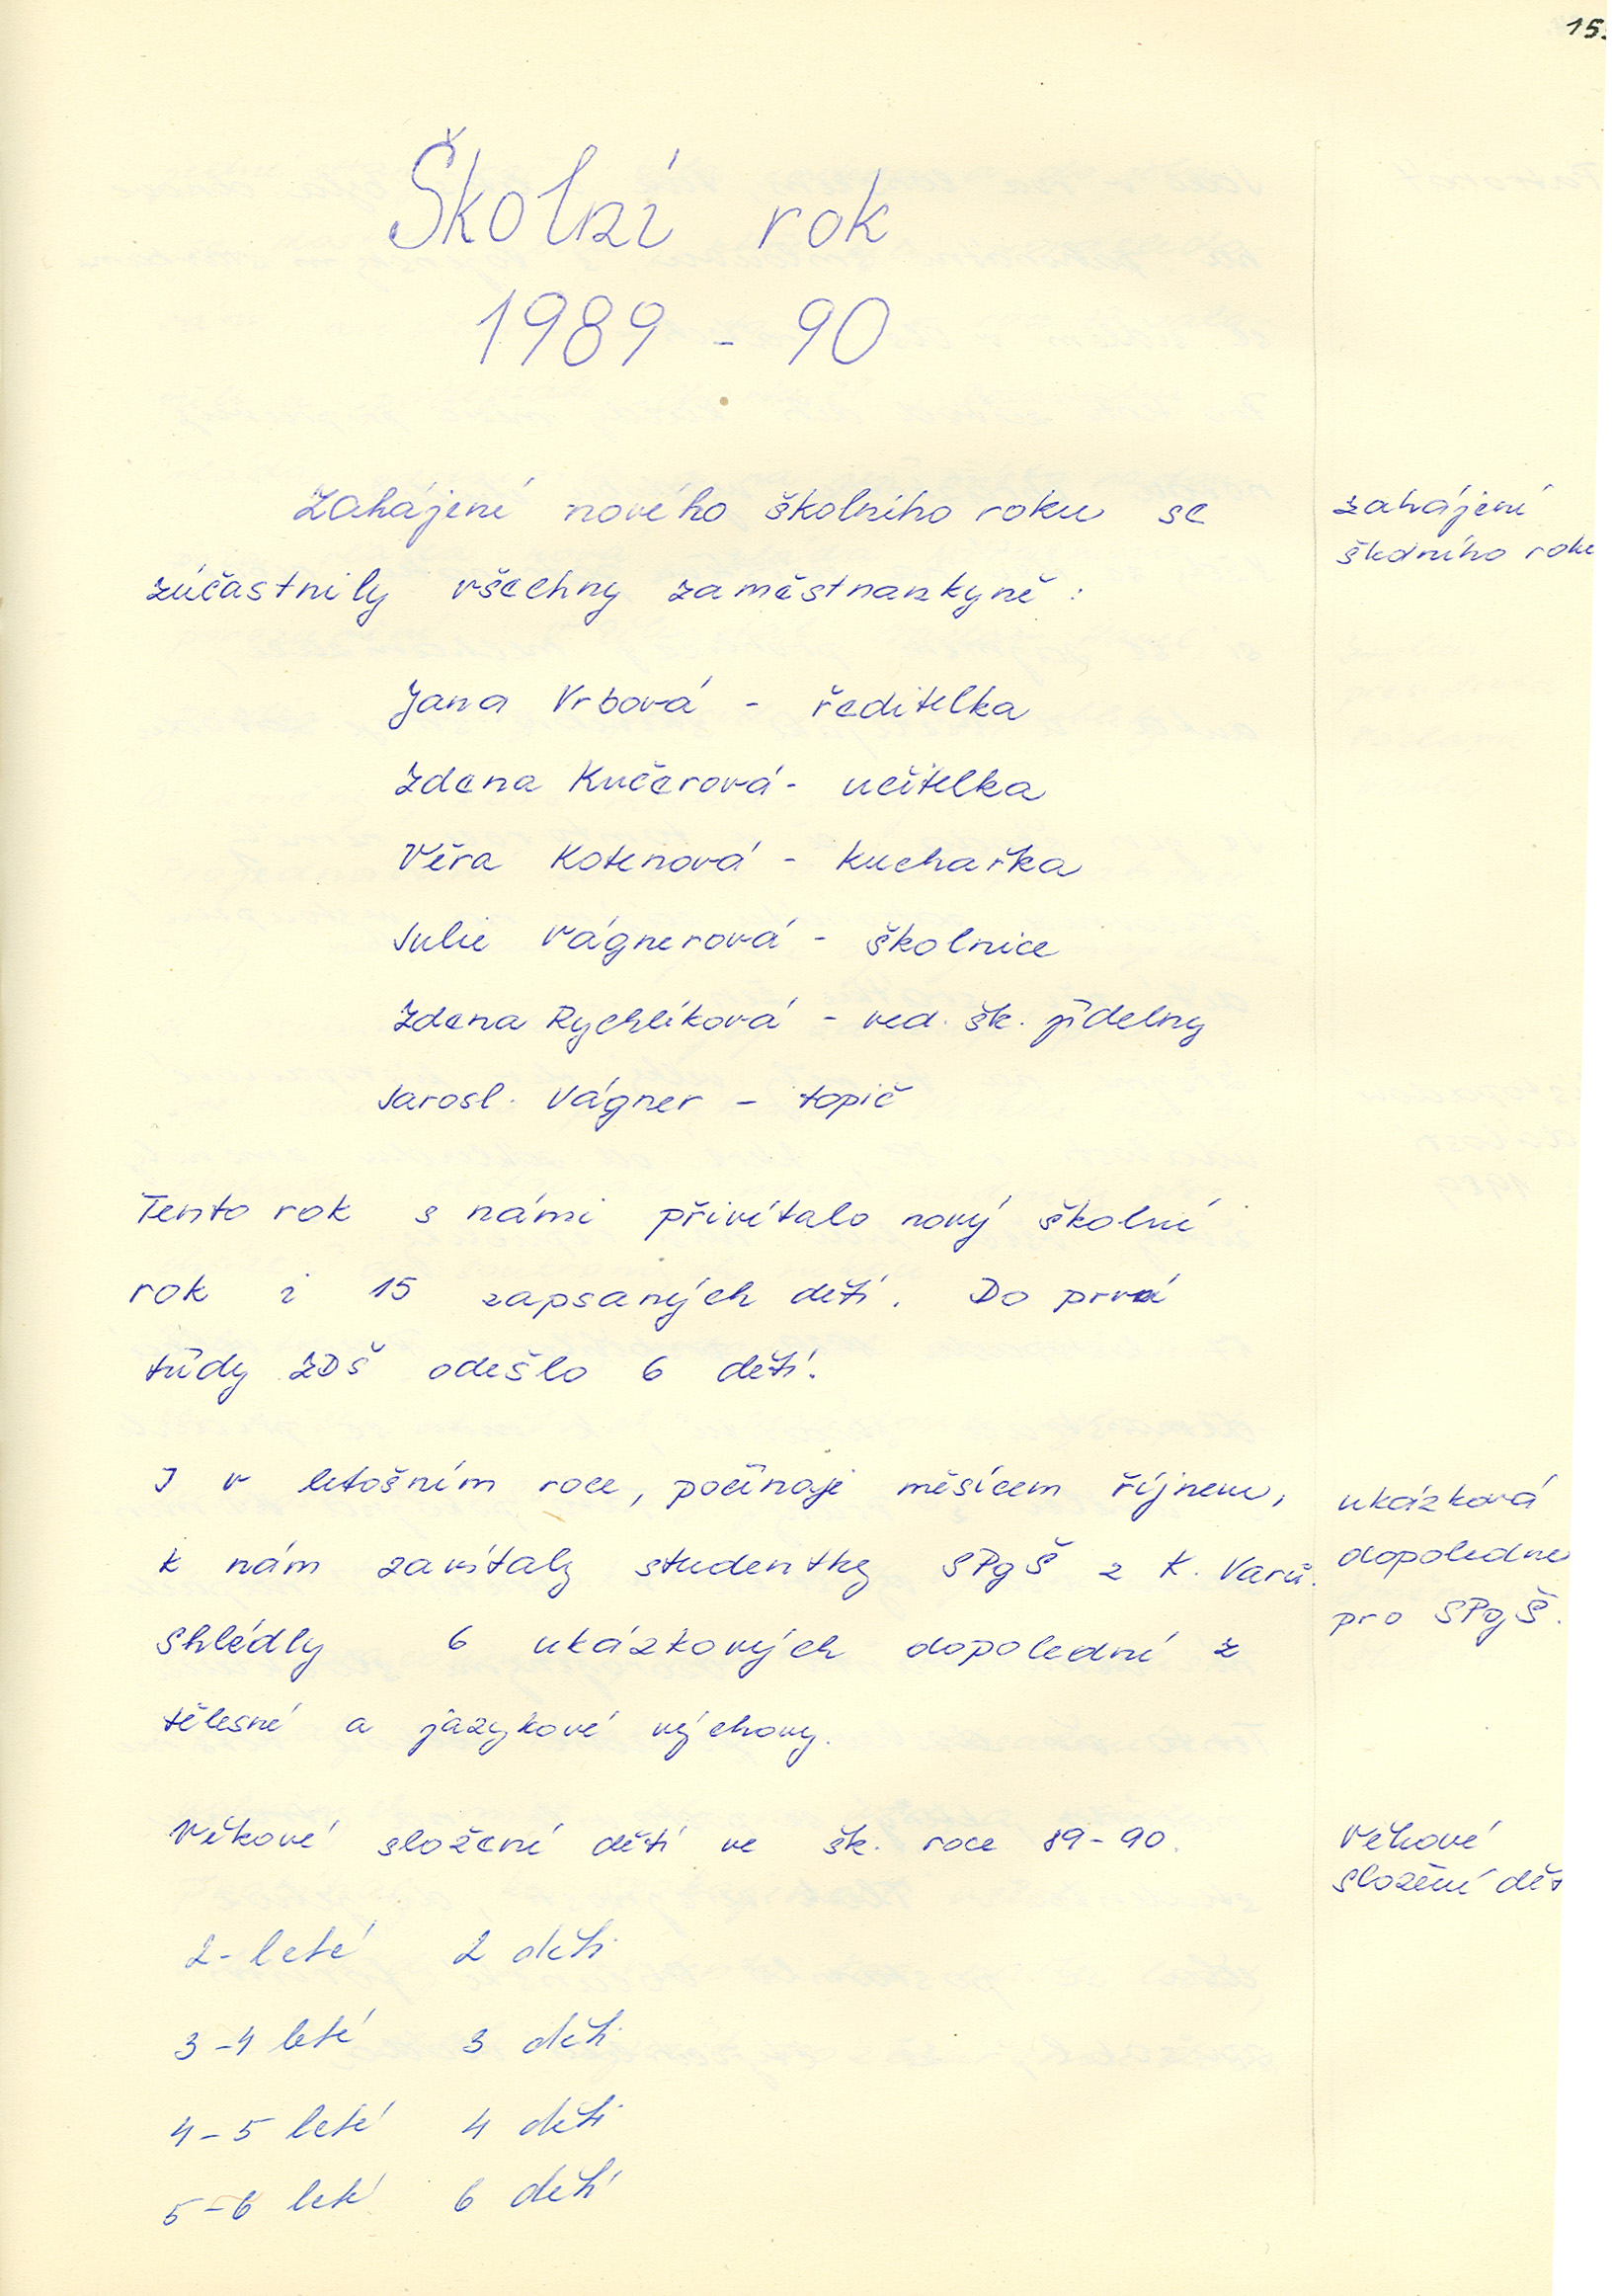 15
Školní rok
1989 - 90
Zahájení nového školního roku se
zúčastnily všechny zaměstnankyně :
zahájení
školního roku
Jana Vrbová - ředitelka
Zdena Kučerová - učitelka
Věra Kotenová - kuchařka
Julie Vágnerová - školnice
Zdena Rychlíková - ved. šk. jídelny
Jarosl. Vágner - topič
Tento rok s námi přivítalo nový školní
rok i 15 zapsaných dětí. Do prvé
třídy ZDŠ odešlo 6 dětí.
I v letošním roce, počínaje měsícem říjnem,
k nám zavítaly studentky SPgŠ z K. Varů.
Shlédly 6 ukázkových dopolední z
tělesné a jazykové výchovy.
ukázková
dopoledne
pro SPgŠ.
Věkové složení dětí ve šk. roce 89-90.
Věkové
složení dět
2-leté 2 děti
3-4 leté 3 děti
4-5 leté 4 děti
5-6 leté 6 dětí